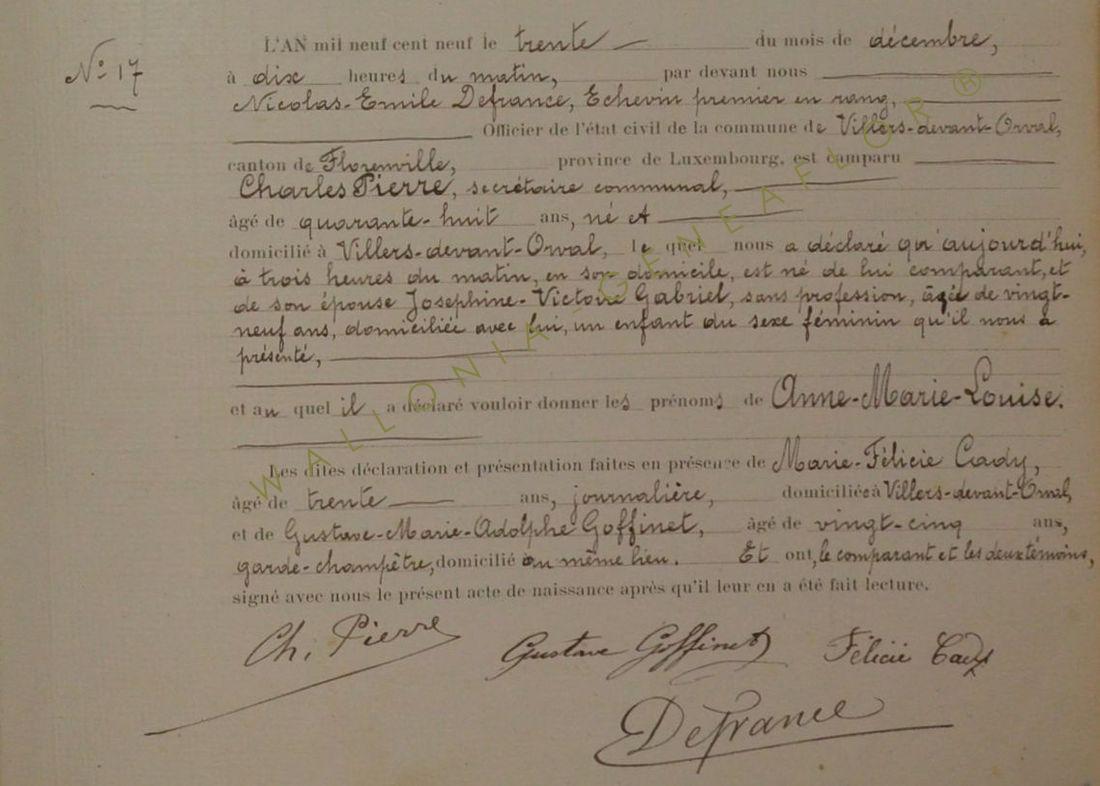 L'AN mil neuf cent neuf le trente du mois de décembre,
N° 17
à dix heures du matin, par devant nous
Nicolas-Emile Defrance, Echevin premier en rang,
Officier de l'état civil de la commune de Villers-devant-Orval,
canton de Florenville, province de Luxembourg, est camparu
Charles Pierre, secrétaire communal,
âgé de quarante-huit ans, né et
domicilié à Villers-devant-Orval, le quel nous a déclaré qu'aujourd'hui,
à trois heures du matin, en son domicile, est né de lui comparant, et
de son épouse Josephine-Victoire Gabriel, sans profession, âgée de vingt-
neuf ans, domiciliée avec lui, un enfant du sexe féminin qu'il nous a
présenté,
et au quel il a déclaré vouloir donner les prénoms de Anne-Marie-Louise.
Les dites déclaration et présentation faites en présence de Marie-Félicie Cady,
âgé de trente ans, journalière, domiciliée à Villers-devant-Orval,
et de Gustave-Marie-Adolphe Goffinet, âgé de vingt-cinq ans,
garde-champêtre, domicilié au même lieu. Et ont, le comparant et les deux témoins,
signé avec nous le présent acte de naissance après qu'il leur en a été fait lecture.
Ch. Pierre Gustave Goffinet Félicie Cady
Defrance
WALLONIA-GENEAFLOR ®